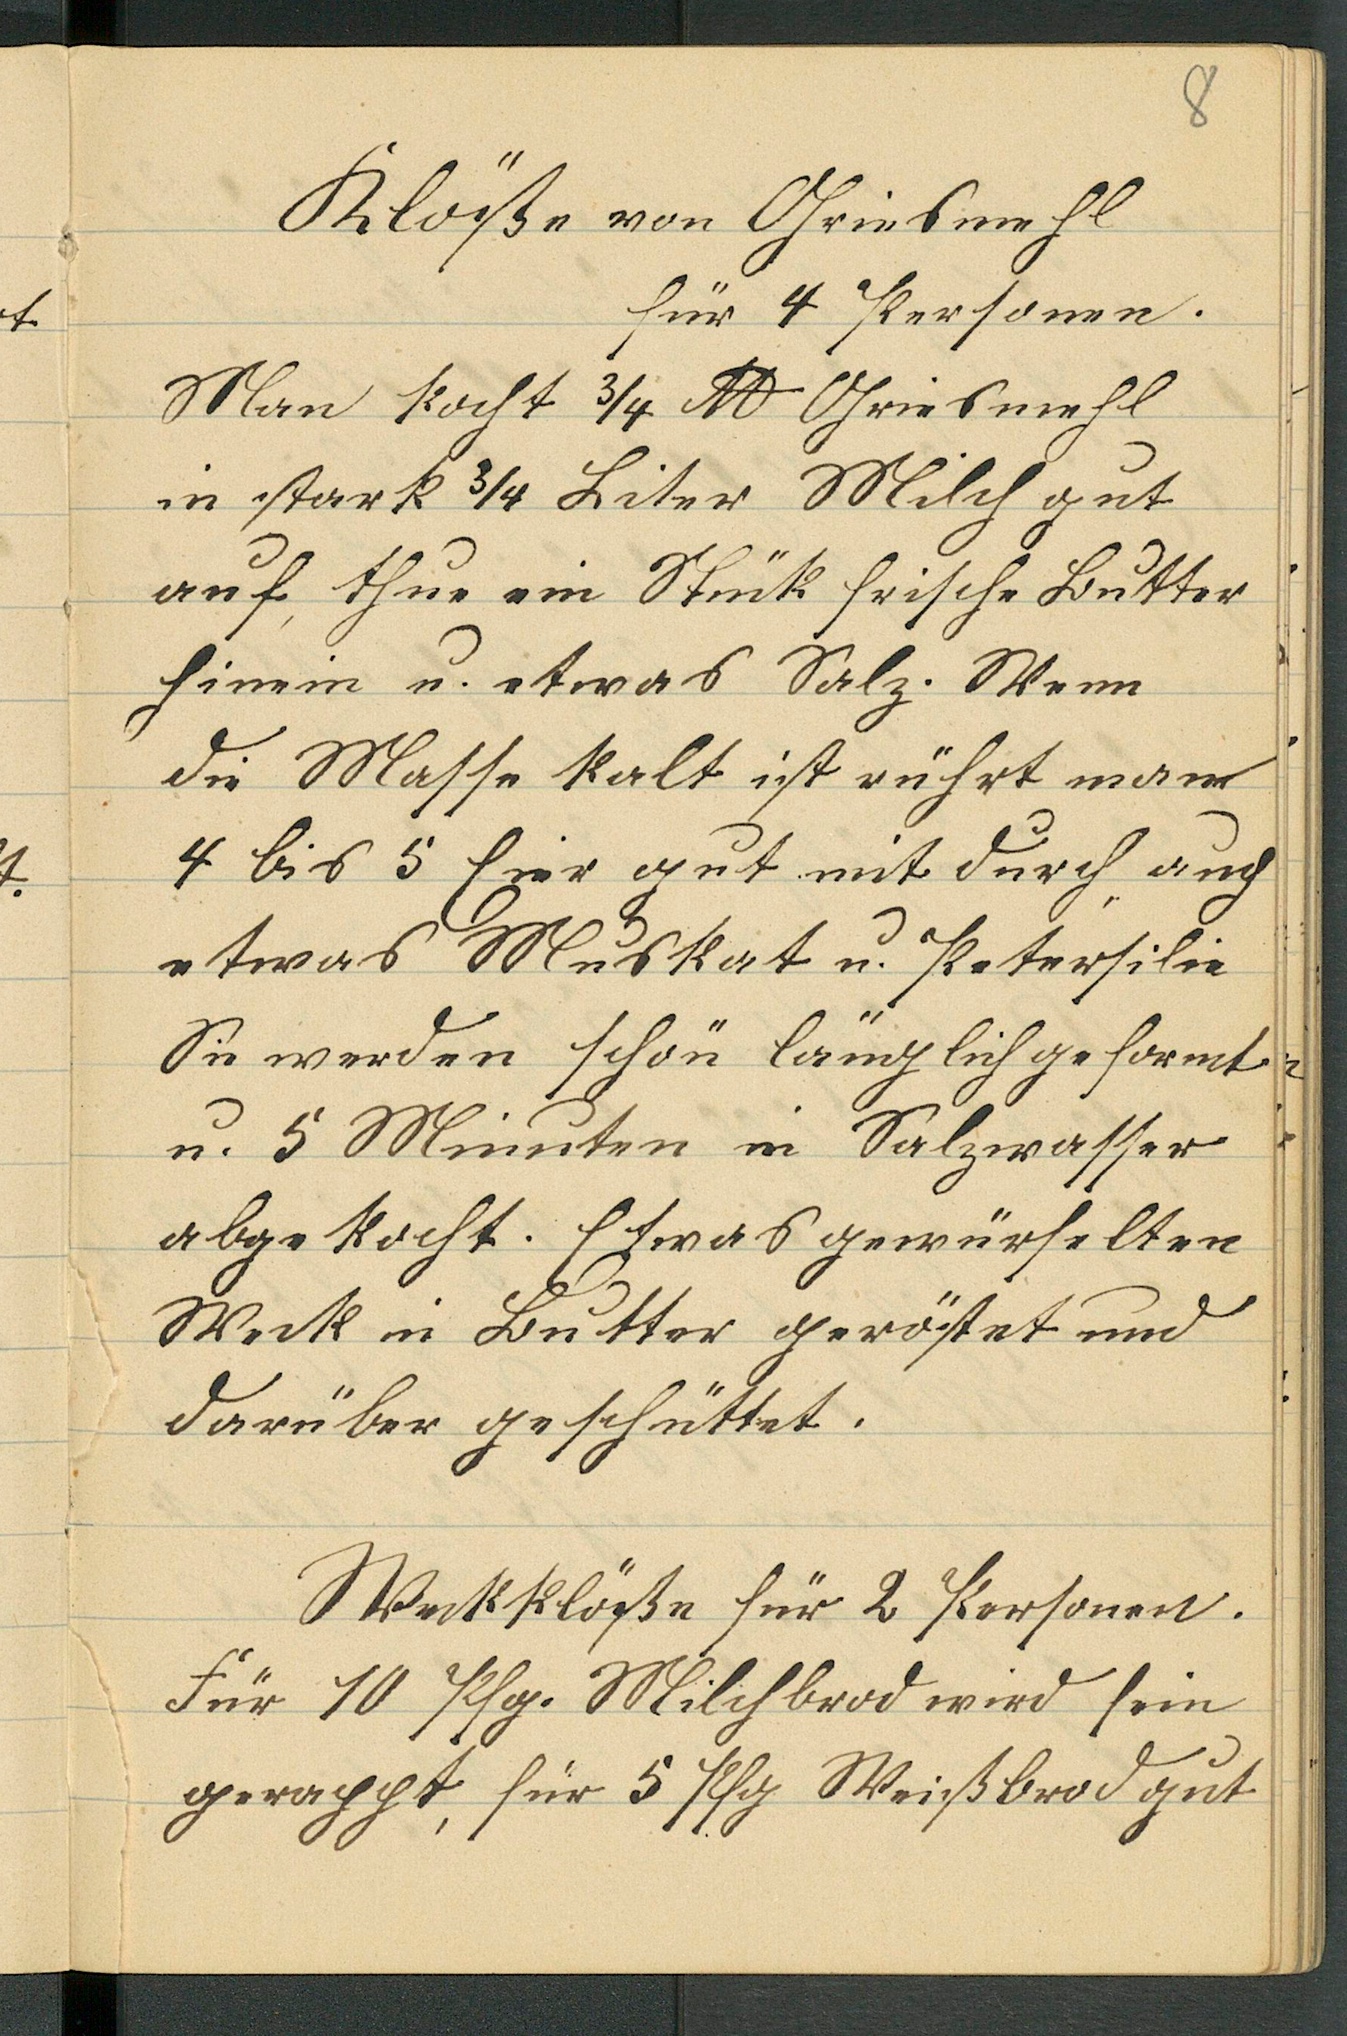 8
Klöße von Griesmehl
für 4 Personen.
Man kocht 3/4 ℔ Griesmehl
in stark 3/4 Liter Milch gut
auf, thue ein Stük frische Butter
hinein u. etwas Salz. Wenn
die Masse kalt ist rührt man
4 bis 5 Eier gut mit durch, auch
etwas Muskat u. Petersilie
Sie werden schön länglich geformt
u. 5 Minuten in Salzwasser
abgekocht. Etwas gewürfelten
Weck in Butter geröstet und
darüber geschüttet.
Weckklöße für 2 Personen.
Für 10 Pfg. Milchbrod wird fein
gerappt, für 5 Pfg Weißbrod gut